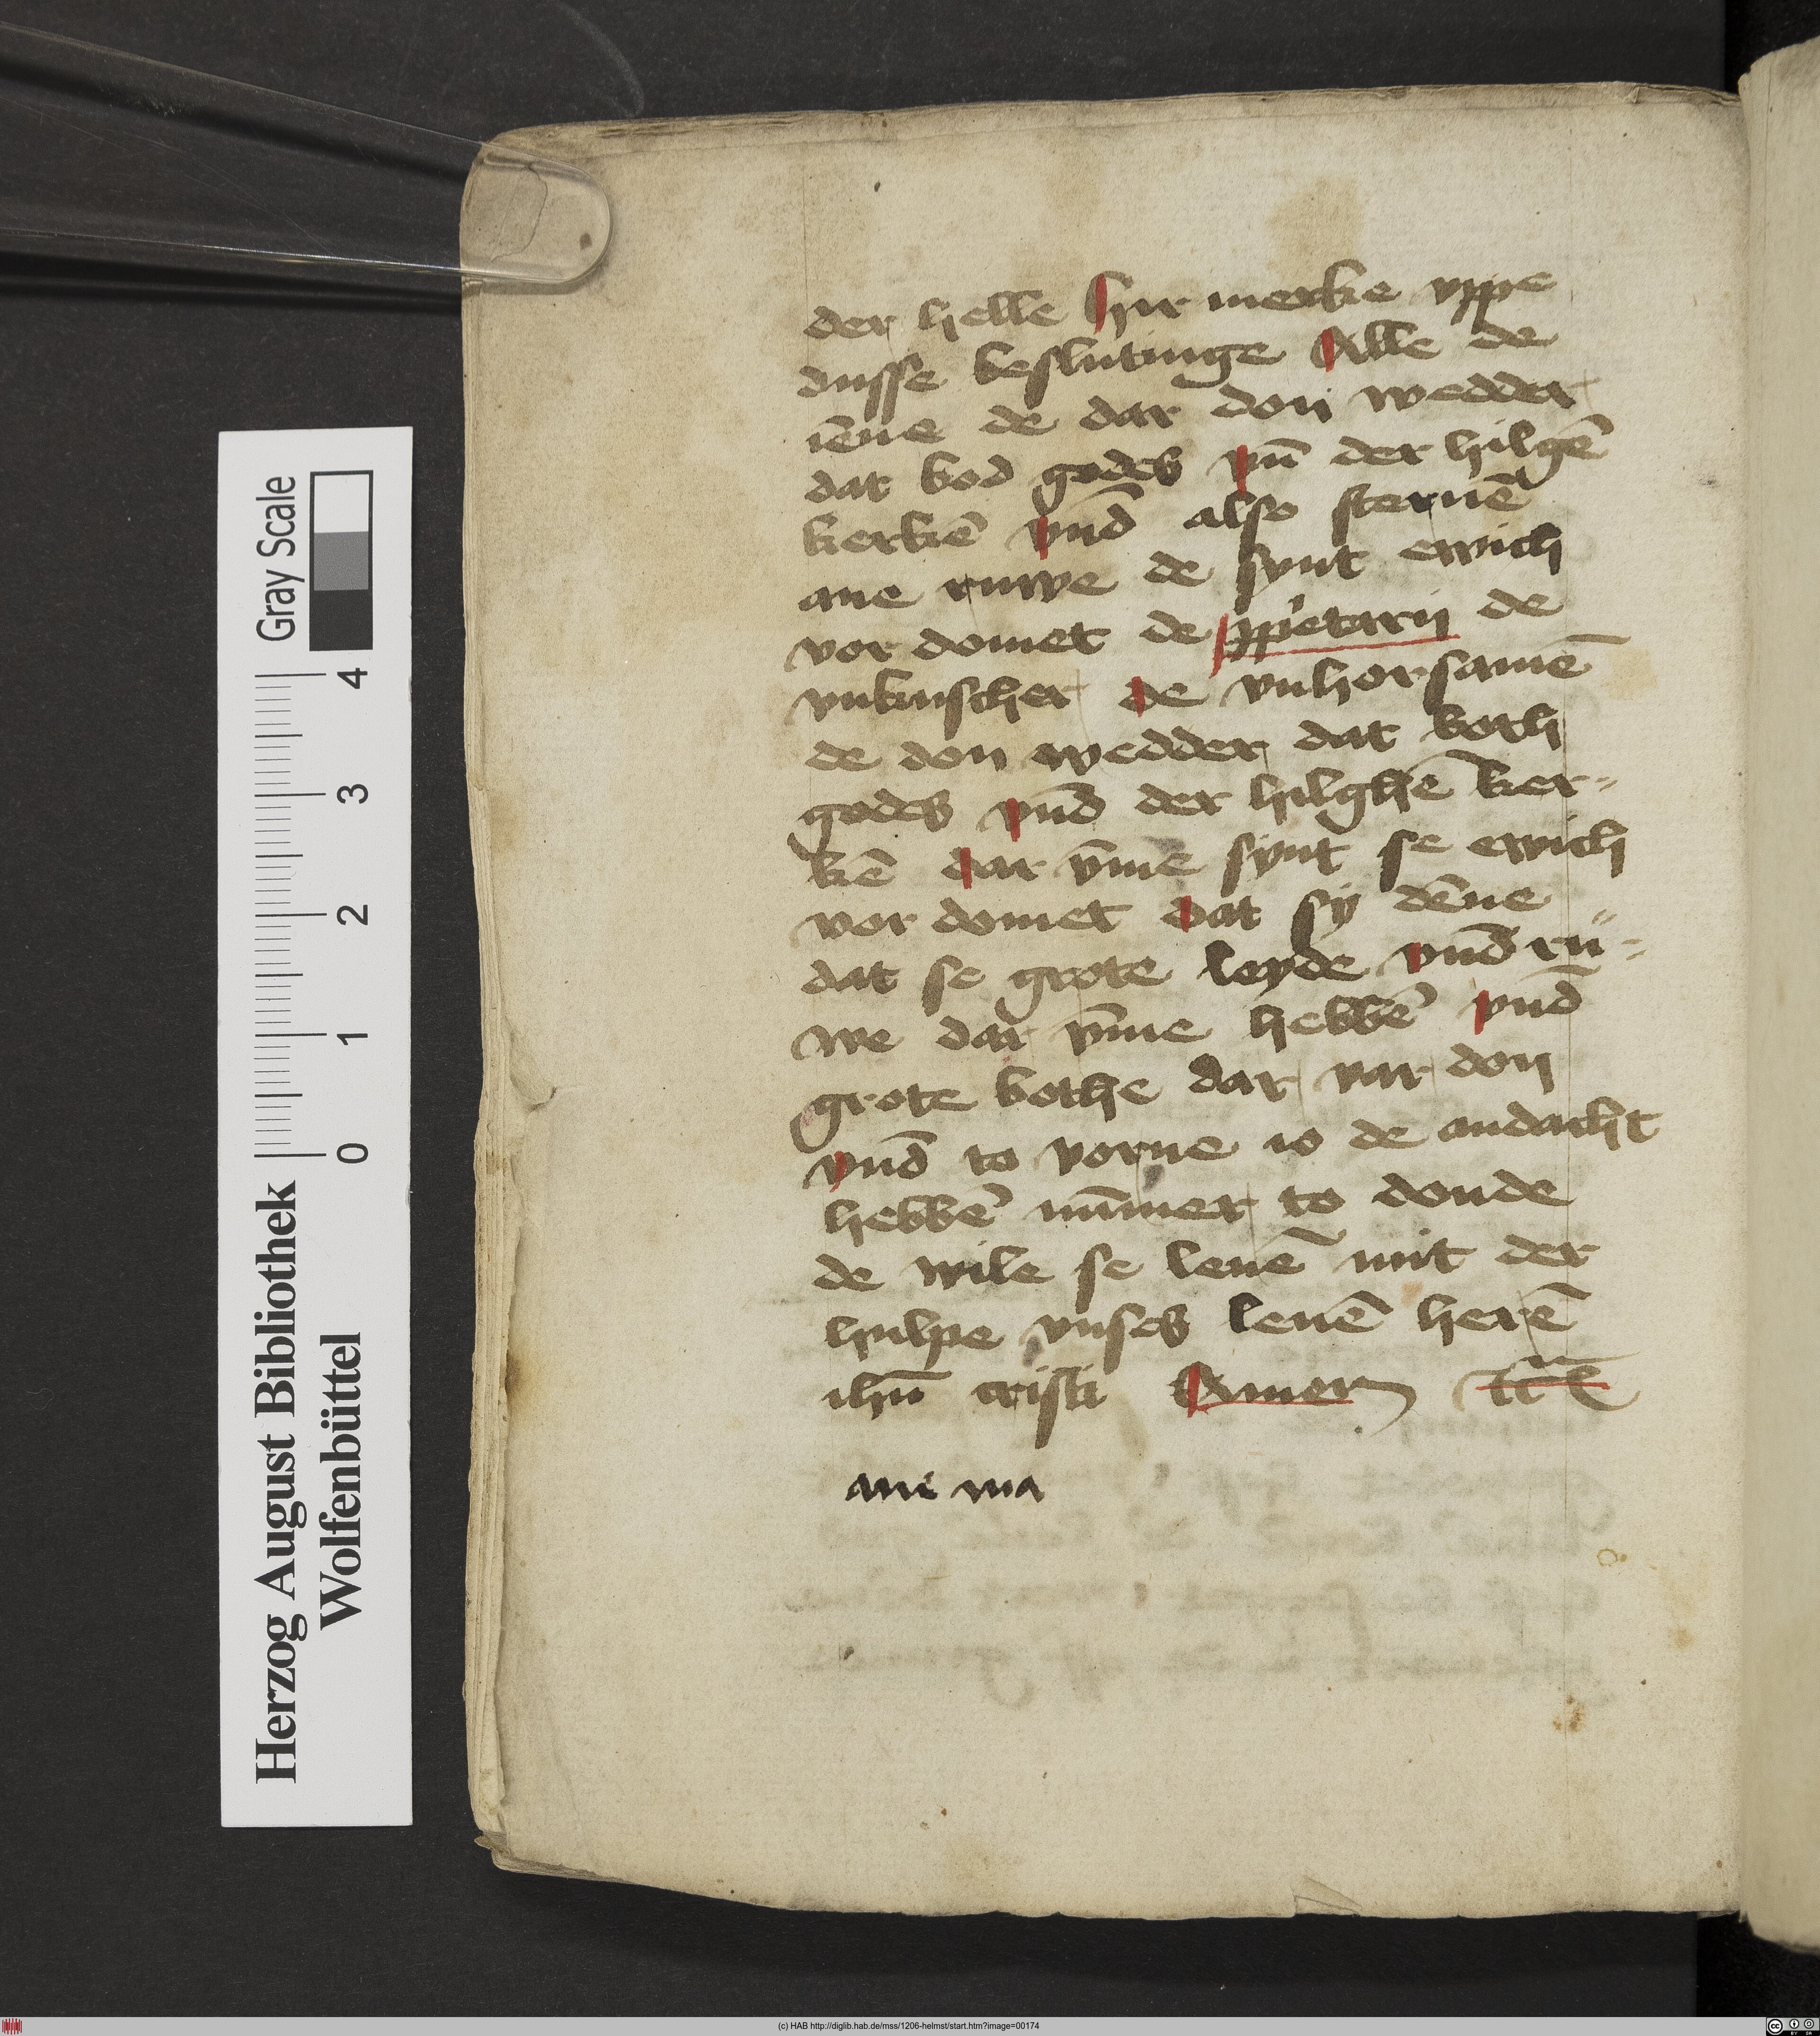 der helle hir merke vppe
dusse beslutinge Alle de
iēne de dar don wedder
dat bod godes vn̄ der hilgē
kerkē vnd̄ also steruē
ane ruwe de synt ewich
vor domet de ꝓp'etarij de
vnkuscher de vnhorsamē
de don wedder dat both
godes vnd̄ der hilghē ker-
kē dar vm̄e synt se ewich
vor domet dat sy dēne
dat se grote leyde vnd̄ rü-
we dar vm̄e hebbē vnd̄
grote bothe dar var don
vnd̄ to vorne io de andacht
hebbē nūmer to donde
de wile se leuē mit der
hulpe vnses leuē herē
ihū cristi Amen
ani ma
Herzog August Bibliothek
Wolfenbüttel
0 1 2 3 4
Gray Scale
(c) HAB http://diglib.hab.de/mss/1206-helmst/start.htm?image=00174